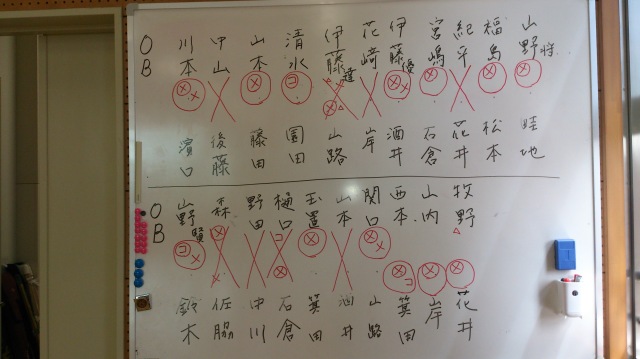 山野将
福島
紀平
宮嶋
伊藤優
花崎
伊藤達
清水
山本
中山
川本
OB
畦地
松本
花井
石倉
酒井
岸
山路
園田
藤田
後藤
濱口
牧野
山内
西本
関口
山本
玉置
樋口
野田
森
山野賢
OB
花井
岸
箕田
山路
酒井
箕田
石倉
中川
佐脇
鈴木